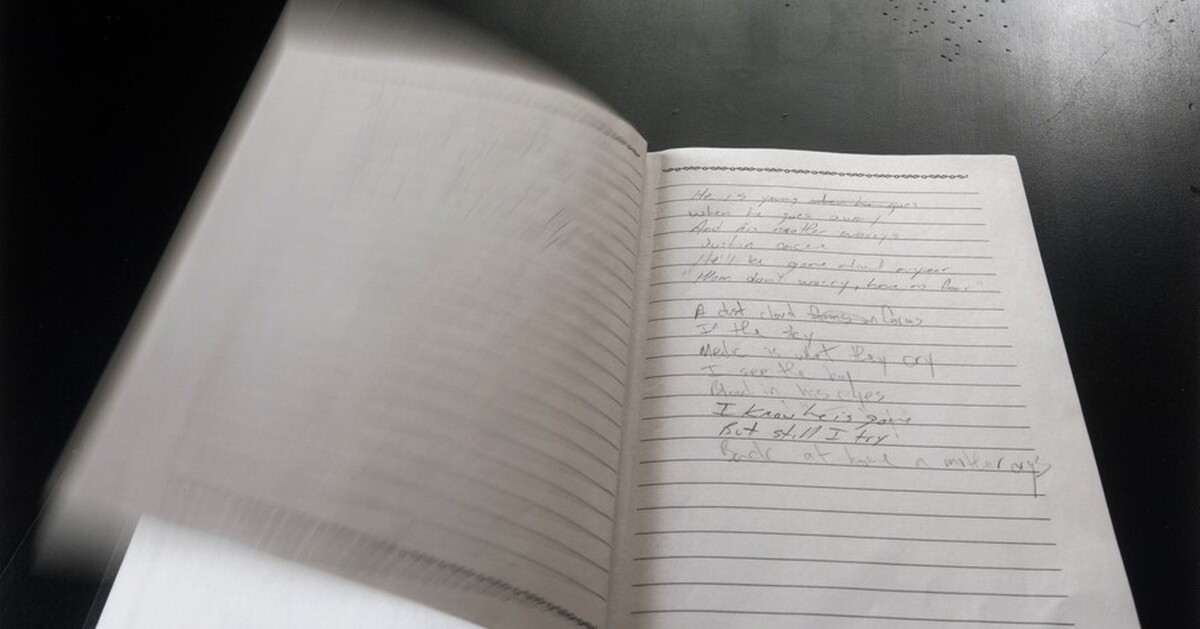 He is young when he goes
when he goes away
And his mother worrys
Just in case
He'll be gone about a year
"Mom don't worry, have no fear"
A dust cloud forms
In the sky
Medic is what they cry
I see the boy
Blood in his eyes
I know he is gone
But still I try
Back at home a mother crys